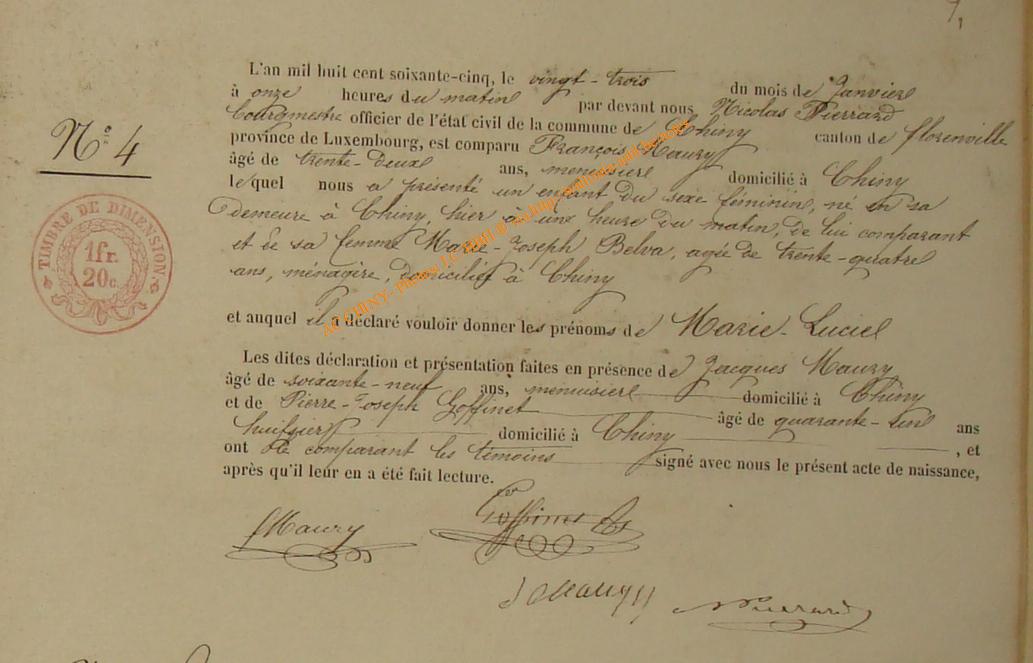 N° 4
TIMBRE DE DIMENSION
1 fr.
20 c.
L'an mil huit cent soixante-cinq, le vingt-trois du mois de Janvier
à onze heures du matin par devant nous Nicolas Pierrard
bourgmestre officier de l'état civil de la commune de Chiny canton de florenville
province de Luxembourg, est comparu François Maury
âgé de trente-deux ans, menuisier domicilié à Chiny
lequel nous a présenté un enfant du sexe féminin, né en sa
demeure à Chiny, hier à une heure du matin, de lui comparant
et de sa femme Marie-Joseph Belva, agée de trente-quatre
ans, ménagère, domiciliée à Chiny
et auquel il a déclaré vouloir donner les prénoms de Marie-Lucie
Les dites déclaration et présentation faites en présence de Jacques Maury
âgé de soixante-neuf ans, menuisier domicilié à Chiny
et de Pierre-Joseph Goffinet âgé de quarante-un ans
huissier domicilié à Chiny , et
ont le comparant les témoins signé avec nous le présent acte de naissance,
après qu'il leur en a été fait lecture.
fMaury
Goffinet
J Maury
NPierrard